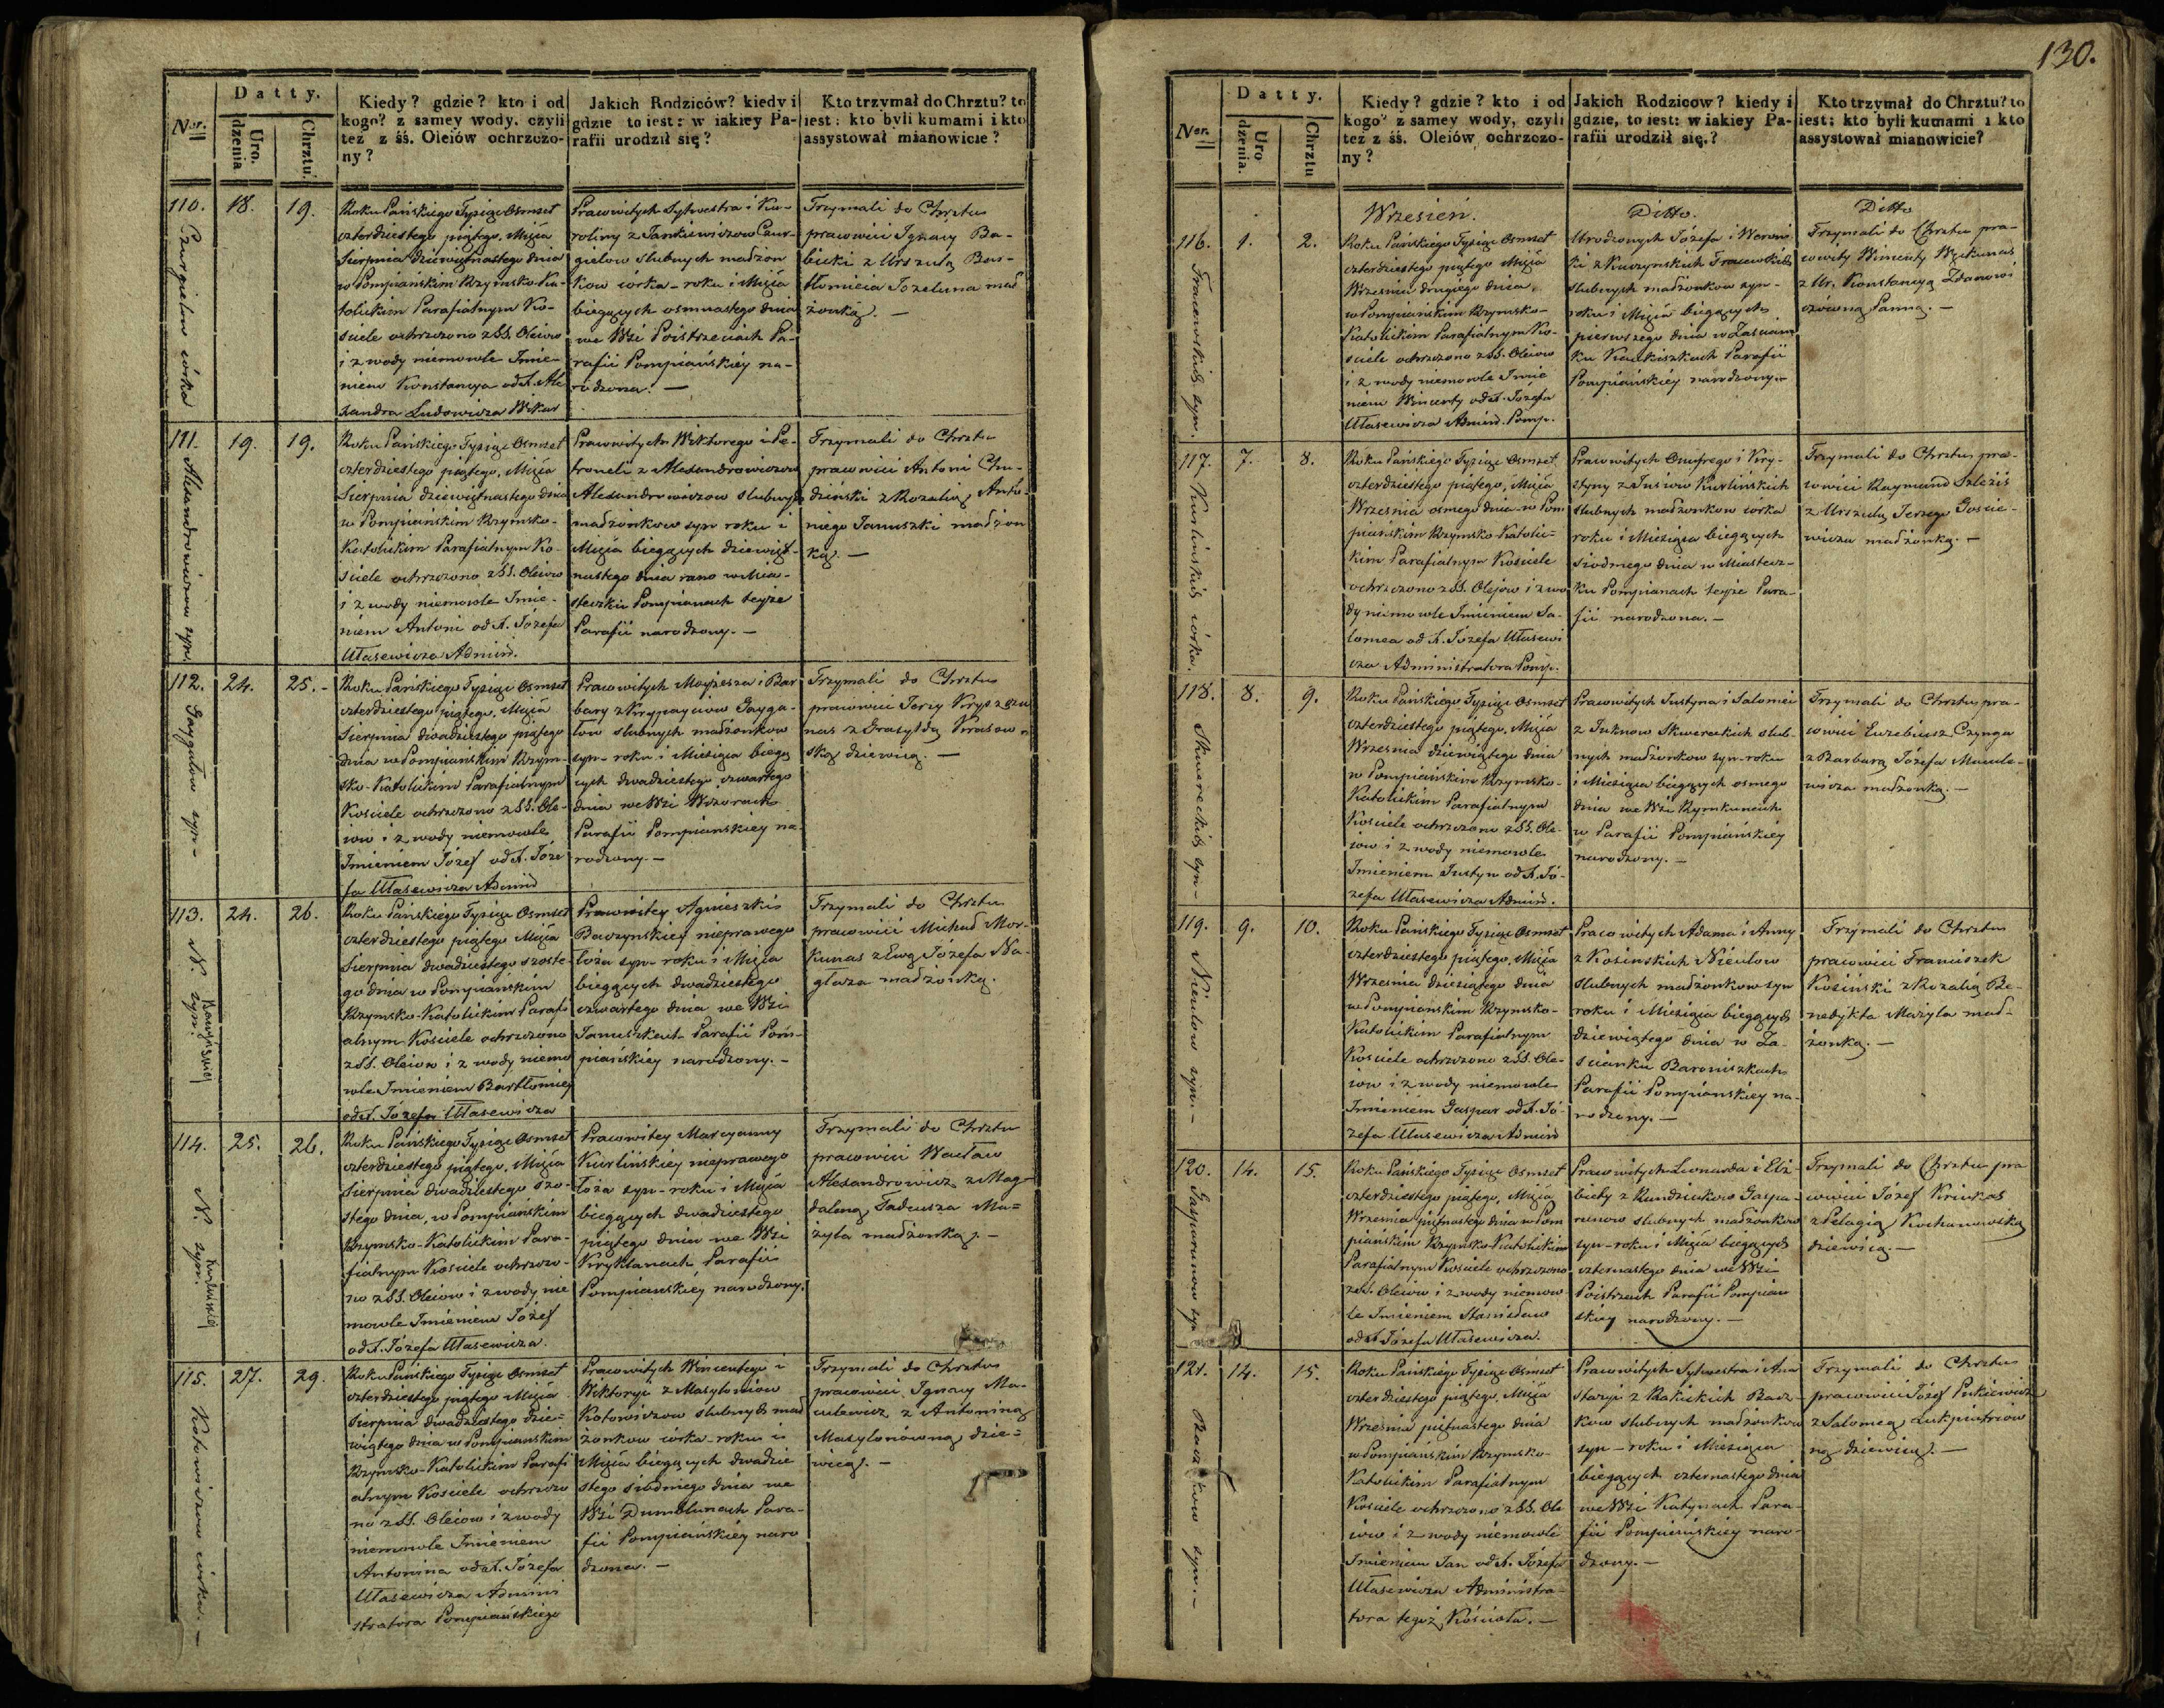 130.
Datty.
Ner.
Uro.
dzenia
Chrztu.
Kiedy? gdzie? kto i od
kogo? z samey wody, czyli
też z śś. Oleiów ochrzczo-
ny?
Jakich Rodziców? kiedy i
gdzie to iest: w iakiey Pa-
rafii urodził się?
Kto trzymał do Chrztu? to
iest: kto byli kumami i kto
assystował mianowicie?
110.
18.
19.
córka
Roku Pańskiego Tysiąc Osmset
czterdziestego piątego, Msca
Sierpnia dziewiętnastego dnia
w Pompianskim Rzymsko-Ka-
tolickim Parafialnym Ko-
sciele ochrzczono z SS. Oleiow
i z wody niemowle Imie-
niem Konstancya od X. Ale
xandra Ludowicza Wikar
Pracowitych Sylwestra i Ka-
roliny z Jankiewiczow
slubnych małżon
kow córka - roku i Msca
bieżących osmnastego dnia
we Wsi Poistrzeciach Pa-
rafii Pompiańskiey na-
rodzona. —
Trzymali do Chrztu
pracowici Ignacy Ba-
bicki z Urszulą Bar-
tłomieia Jozeluna mał
żonką. —
111.
19.
19.
Alexandrowiczow syn.
Roku Pańskiego Tysiąc Osmset
czterdziestego piątego, Msca
Sierpnia dziewiętnastego dnia
w Pompianskim Rzymsko-
Katolickim Parafialnym Ko-
sciele ochrzczono z SS. Oleiow
i z wody niemowle Imie-
niem Antoni od X. Józefa
Ułasewicza Admin.
Pracowitych Wiktorego i Pe-
troneli z Alexandrowiczow
Alexandrowiczow slubnych
małżonkow syn roku i
Msca bieżących dziewięt-
nastego dnia rano w Mia-
steczku Pompianach teyże
Parafii narodzony. —
Trzymali do Chrztu
pracowici Antoni Chu-
dziński z Rozalią Anto-
niego Januszki małżon
ką. —
112.
24.
25. -
Gaygałow syn -
Roku Pańskiego Tysiąc Osmset
czterdziestego piątego, Msca
Sierpnia dwadziestego piątego
dnia w Pompianskim Rzym-
sko-Katolickim Parafialnym
Kosciele ochrzczono z SS. Ole-
iow i z wody niemowle
Imieniem Józef od X. Józe
fa Ułasewicza Admin
Pracowitych Moyżesza i Bar
bary z Gayga-
łow slubnych małżonkow
syn - roku i Miesiąca bieżą
cych dwadziestego czwartego
dnia we Wsi
Parafii Pompianskiey na-
rodzony. —
Trzymali do Chrztu
pracowici Jerzy
nas z Grasyldą
ską dziewicą. —
113.
24.
26.
N. syn.
Roku Pańskiego Tysiąc Osmset
czterdziestego piątego Msca
Sierpnia dwadziestego szoste-
go dnia w Pompiańskim
Rzymsko-Katolickim Parafi
alnym Kosciele ochrzczono
z SS. Oleiow i z wody niemo
wle Imieniem Bartłomiey
od X. Józefa Ułasewicza
Pracowitey Agnieszki
nieprawego
łoża syn - roku i Msca
bieżących dwadziestego
czwartego dnia we Wsi
Januszkach Parafii Pom-
piańskiey narodzony. -
Trzymali do Chrztu
pracowici Michał Mor-
kunas z Ewą Józefa
małżonką.
114.
25.
26.
N. syn.
Kurlińskiey
Roku Pańskiego Tysiąc Osmset
czterdziestego piątego, Msca
Sierpnia dwadziestego szo-
stego dnia, w Pompianskim
Rzymsko-Katolickim Para-
fialnym Kosciele ochrzczo-
no z SS. Oleiow i z wody nie
mowle Imieniem Józef
od X. Józefa Ułasewicza.
Pracowitey Maryanny
Kurlińskiey nieprawego
łoża syn - roku i Msca
bieżących dwadziestego
piątego dnia we Wsi
Kiryklanach Parafii
Pompianskiey narodzony.
Trzymali do Chrztu
pracowici Wacław
Alexandrowicz z Mag-
daleną Tadeusza Ma=
żyla małżonką. —
115.
27.
29.
Kotowiczow córka. —
Roku Pańskiego Tysiąc Osmset
czterdziestego piątego Msca
Sierpnia dwadziestego dzie=
wiątego dnia w Pompianskim
Rzymsko-Katolickim Parafi
alnym Kosciele ochrzczo
no z SS. Oleiow i z wody
niemowle Imieniem
Antonina od X. Józefa
Ułasewicza Admini
stratora Pompiańskiego
Pracowitych Wincentego i
Wiktoryi z Masyloniow
Kotowiczow slubnych mał
żonkow córka - roku i
Msca bieżących dwadzie
stego siódmego dnia we
Wsi Dumblunach Para-
fii Pompiańskiey naro
dzona. —
Trzymali do Chrztu
pracowici Ignacy Ma-
culewicz z Antoniną
Masylonówną dzie=
wicą. —
Datty.
Ner.
Uro
dzenia.
Chrztu
Kiedy? gdzie? kto i od
kogo? z samey wody, czyli
też z śś. Oleiów ochrzczo-
ny?
Jakich Rodzicow? kiedy i
gdzie, to iest: w iakiey Pa-
rafii urodził się.?
Kto trzymał do Chrztu? to
iest; kto byli kumami i kto
assystował mianowicie?
Wrzesień.
Ditto.
Ditto
116.
1.
2.
syn.
Roku Pańskiego Tysiąc Osmset
czterdziestego piątego Msca
Września drugiego dnia,
w Pompianskim Rzymsko-
Katolickim Parafialnym Ko-
sciele ochrzczono z SS. Oleiow
i z wody niemowle Imie
niem Wincenty od X. Józefa
Ułasewicza Admin. Pomp.
Urodzonych Józefa i Weroni
ki z Kuczynskich
slubnych małżonkow syn -
roku i Msca bieżących
pierwszego dnia w Zascian
ku Kaukiszkach Parafii
Pompiańskiey narodzony. -
Trzymali do Chrztu pra-
cowity Wincenty
z Ur. Konstancyą Zdanowi
czówną Panną. —
117.
7.
8.
Kurlińskich córka.
Roku Pańskiego Tysiąc Osmset
czterdziestego piątego, Msca
Września osmego dnia w Pom
piańskim Rzymsko-Katolic=
kim Parafialnym Kosciele
ochrzczono z SS. Olejow i z wo
dy niemowle Imieniem Sa-
lomea od X. Józefa Ułasewi
cza Administratora Pomp.
Pracowitych Onufrego i Kry-
styny z Kurlińskich
slubnych małżonkow córka
roku i Miesiąca bieżących
siodmego dnia w Miastecz-
ku Pompianach teyże Para-
fii narodzona. -
Trzymali do Chrztu pra-
cowici Raymund
z Urszulą Jerzego Gosce-
wicza małżonką. —
118.
8.
9.
Skwereckich syn -
Roku Pańskiego Tysiąc Osmset
czterdziestego piątego, Msca
Września dziewiątego dnia
w Pompiańskim Rzymsko-
Katolickim Parafialnym
Kosciele ochrzczono z SS. Ole-
iow i z wody niemowle
Imieniem Justyn od X. Jó-
zefa Ułasewicza Admin.
Pracowitych Justyna i Salomei
z Juknow Skwereckich slub-
nych małżonkow syn - roku
i Miesiąca bieżących osmego
dnia we Wsi Rymkunach
w Parafii Pompiańskiey
narodzony. —
Trzymali do Chrztu pra-
cowici Euzebiusz Czynga
z Barbarą Józefa Macule-
wicza małżonką. —
119.
9.
10.
Nieulow syn. -
Roku Pańskiego Tysiąc Osmset
czterdziestego piątego, Msca
Września dziesiątego dnia
w Pompianskim Rzymsko-
Katolickim Parafialnym
Kosciele ochrzczono z SS. Ole-
iow i z wody niemowle
Imieniem Gaspar od X. Jó-
zefa Ułasewicza Admin
Pracowitych Adama i Anny
z Kosinskich Nieulow
slubnych małżonkow syn
roku i Miesiąca bieżących
dziewiątego dnia w Za-
scianku Baroniszkach
Parafii Pompiańskiey na-
rodzony. —
Trzymali do Chrztu
pracowici Franciszek
Kosiński z Rozalią Be-
nedykta Mażyla mał-
żonką. —
120.
14.
15.
Gasparunow syn
Roku Pańskiego Tysiąc Osmset
czterdziestego piątego, Msca
Września piętnastego dnia w Pom
piańskim Rzymsko-Katolickim
Parafialnym Kosciele ochrzczono
z SS. Oleiow i z wody niemow
le Imieniem Stanisław
od X. Józefa Ułasewicza.
Pracowitych Leonarda i Elż-
biety z Gaspa-
runow slubnych małżonkow
syn - roku i Msca bieżących
czternastego dnia we Wsi
Poistrzach Parafii Pompian
skiey narodzony. —
Trzymali do Chrztu pra
cowici Józef Krinkas
z Pelagią Kochanowską
dziewicą. —
121.
14.
15.
syn. -
Roku Pańskiego Tysiąc Osmset
czterdziestego piątego, Msca
Września piętnastego dnia
w Pompiańskim Rzymsko-
Katolickim Parafialnym
Kosciele ochrzczono z SS. Ole
iow i z wody niemowle
Imieniem Jan od X. Józefa
Ułasewicza Administra-
tora tegoż Kościoła. —
Pracowitych Sylwestra i Ana
stazyi z Rakickich
kow slubnych małżonkow
syn - roku i Miesiąca
bieżących czternastego dnia
we Wsi Katynach Para-
fii Pompiańskiey naro-
dzony. —
Trzymali do Chrztu
pracowici Józef
z Salomeą
ną dziewicą. —